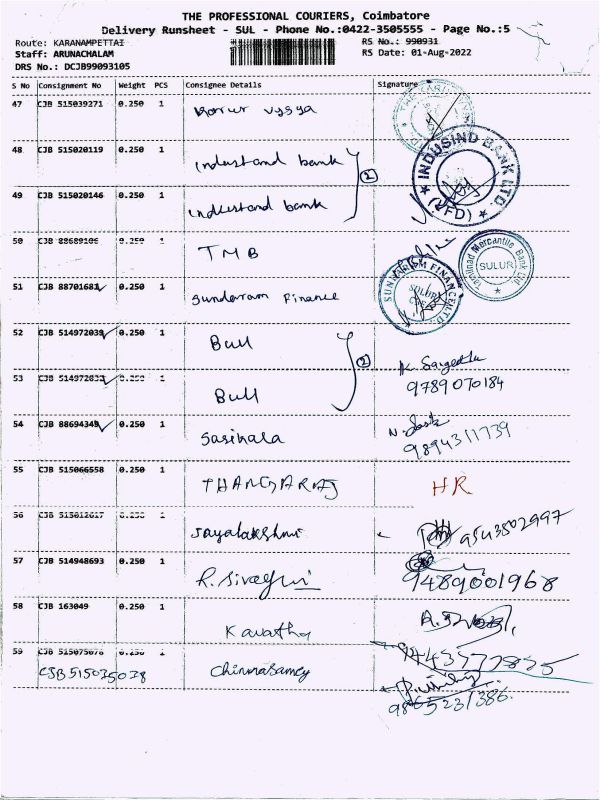 THE PROFESSIONAL COURIERS, Coimbatore
Delivery Runsheet - SUL - Phone No.:0422-3505555 - Page No.:5
Route: KARANAMPETTAI
RS No.: 990931
Staff: ARUNACHALAM
RS Date: 01-Aug-2022
DRS No.: DCJB99093105
S No Consignment No Weight PCS Consignee Details Signature
47 CJB 515039271 0.250 1 Karur vysya
48 CJB 515020119 0.250 1 Industand bank
2
INDUSIND BANK LTD.
49 CJB 515020146 0.250 1 Industand bank
50 CJB 88689106 0.250 1 TMB
Tamilnad Mercantile Bank Ltd.
SULUR
51 CJB 88701681 0.250 1 Sundaram Finance
SUNDARAM FINANCE LTD
52 CJB 514972039 0.250 1 Bull
2
53 1 Bull
9789070184
54 CJB 88694349 0.250 1 Sasikala
9894311739
55 CJB 515066558 0.250 1 THANGARAJ HR
56 Jayalakshmi
57 CJB 514948693 0.250 1
9489001968
58 CJB 163049 0.250 1
59 CJB 515075078 0.250 1 Chinnasamy
CJB515035038